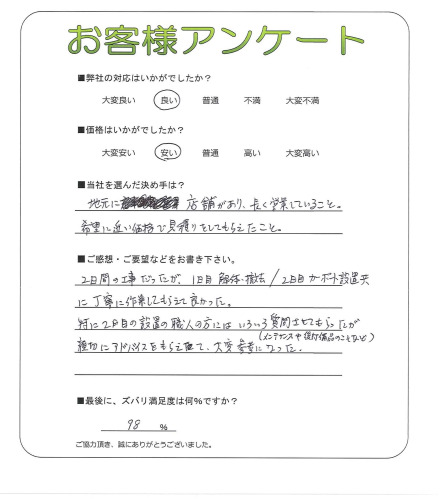 お客様アンケート
■弊社の対応はいかがでしたか？
大変良い 良い 普通 不満 大変不満
■価格はいかがでしたか？
大変安い 安い 普通 高い 大変高い
■当社を選んだ決め手は？
地元に 店舗があり、長く営業していること。
希望に近い価格で見積りをしてもらえたこと。
■ご感想・ご要望などをお書き下さい。
2日間の工事だったが、1日目 解体・撤去／2日目カーポート設置共
に丁寧に作業してもらえて良かった。
特に2日目の設置の職人の方には いろいろ質問させてもらったが
(メンテナンスや後付備品のことなど)
親切にアドバイスをもらえて、大変参考になった。
■最後に、ズバリ満足度は何%ですか？
98 %
ご協力頂き、誠にありがとうございました。